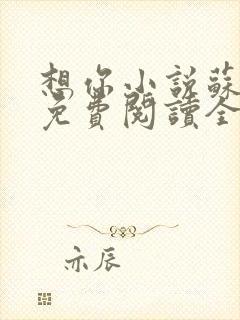 想你小説蘇
免費閱讀全
亦辰